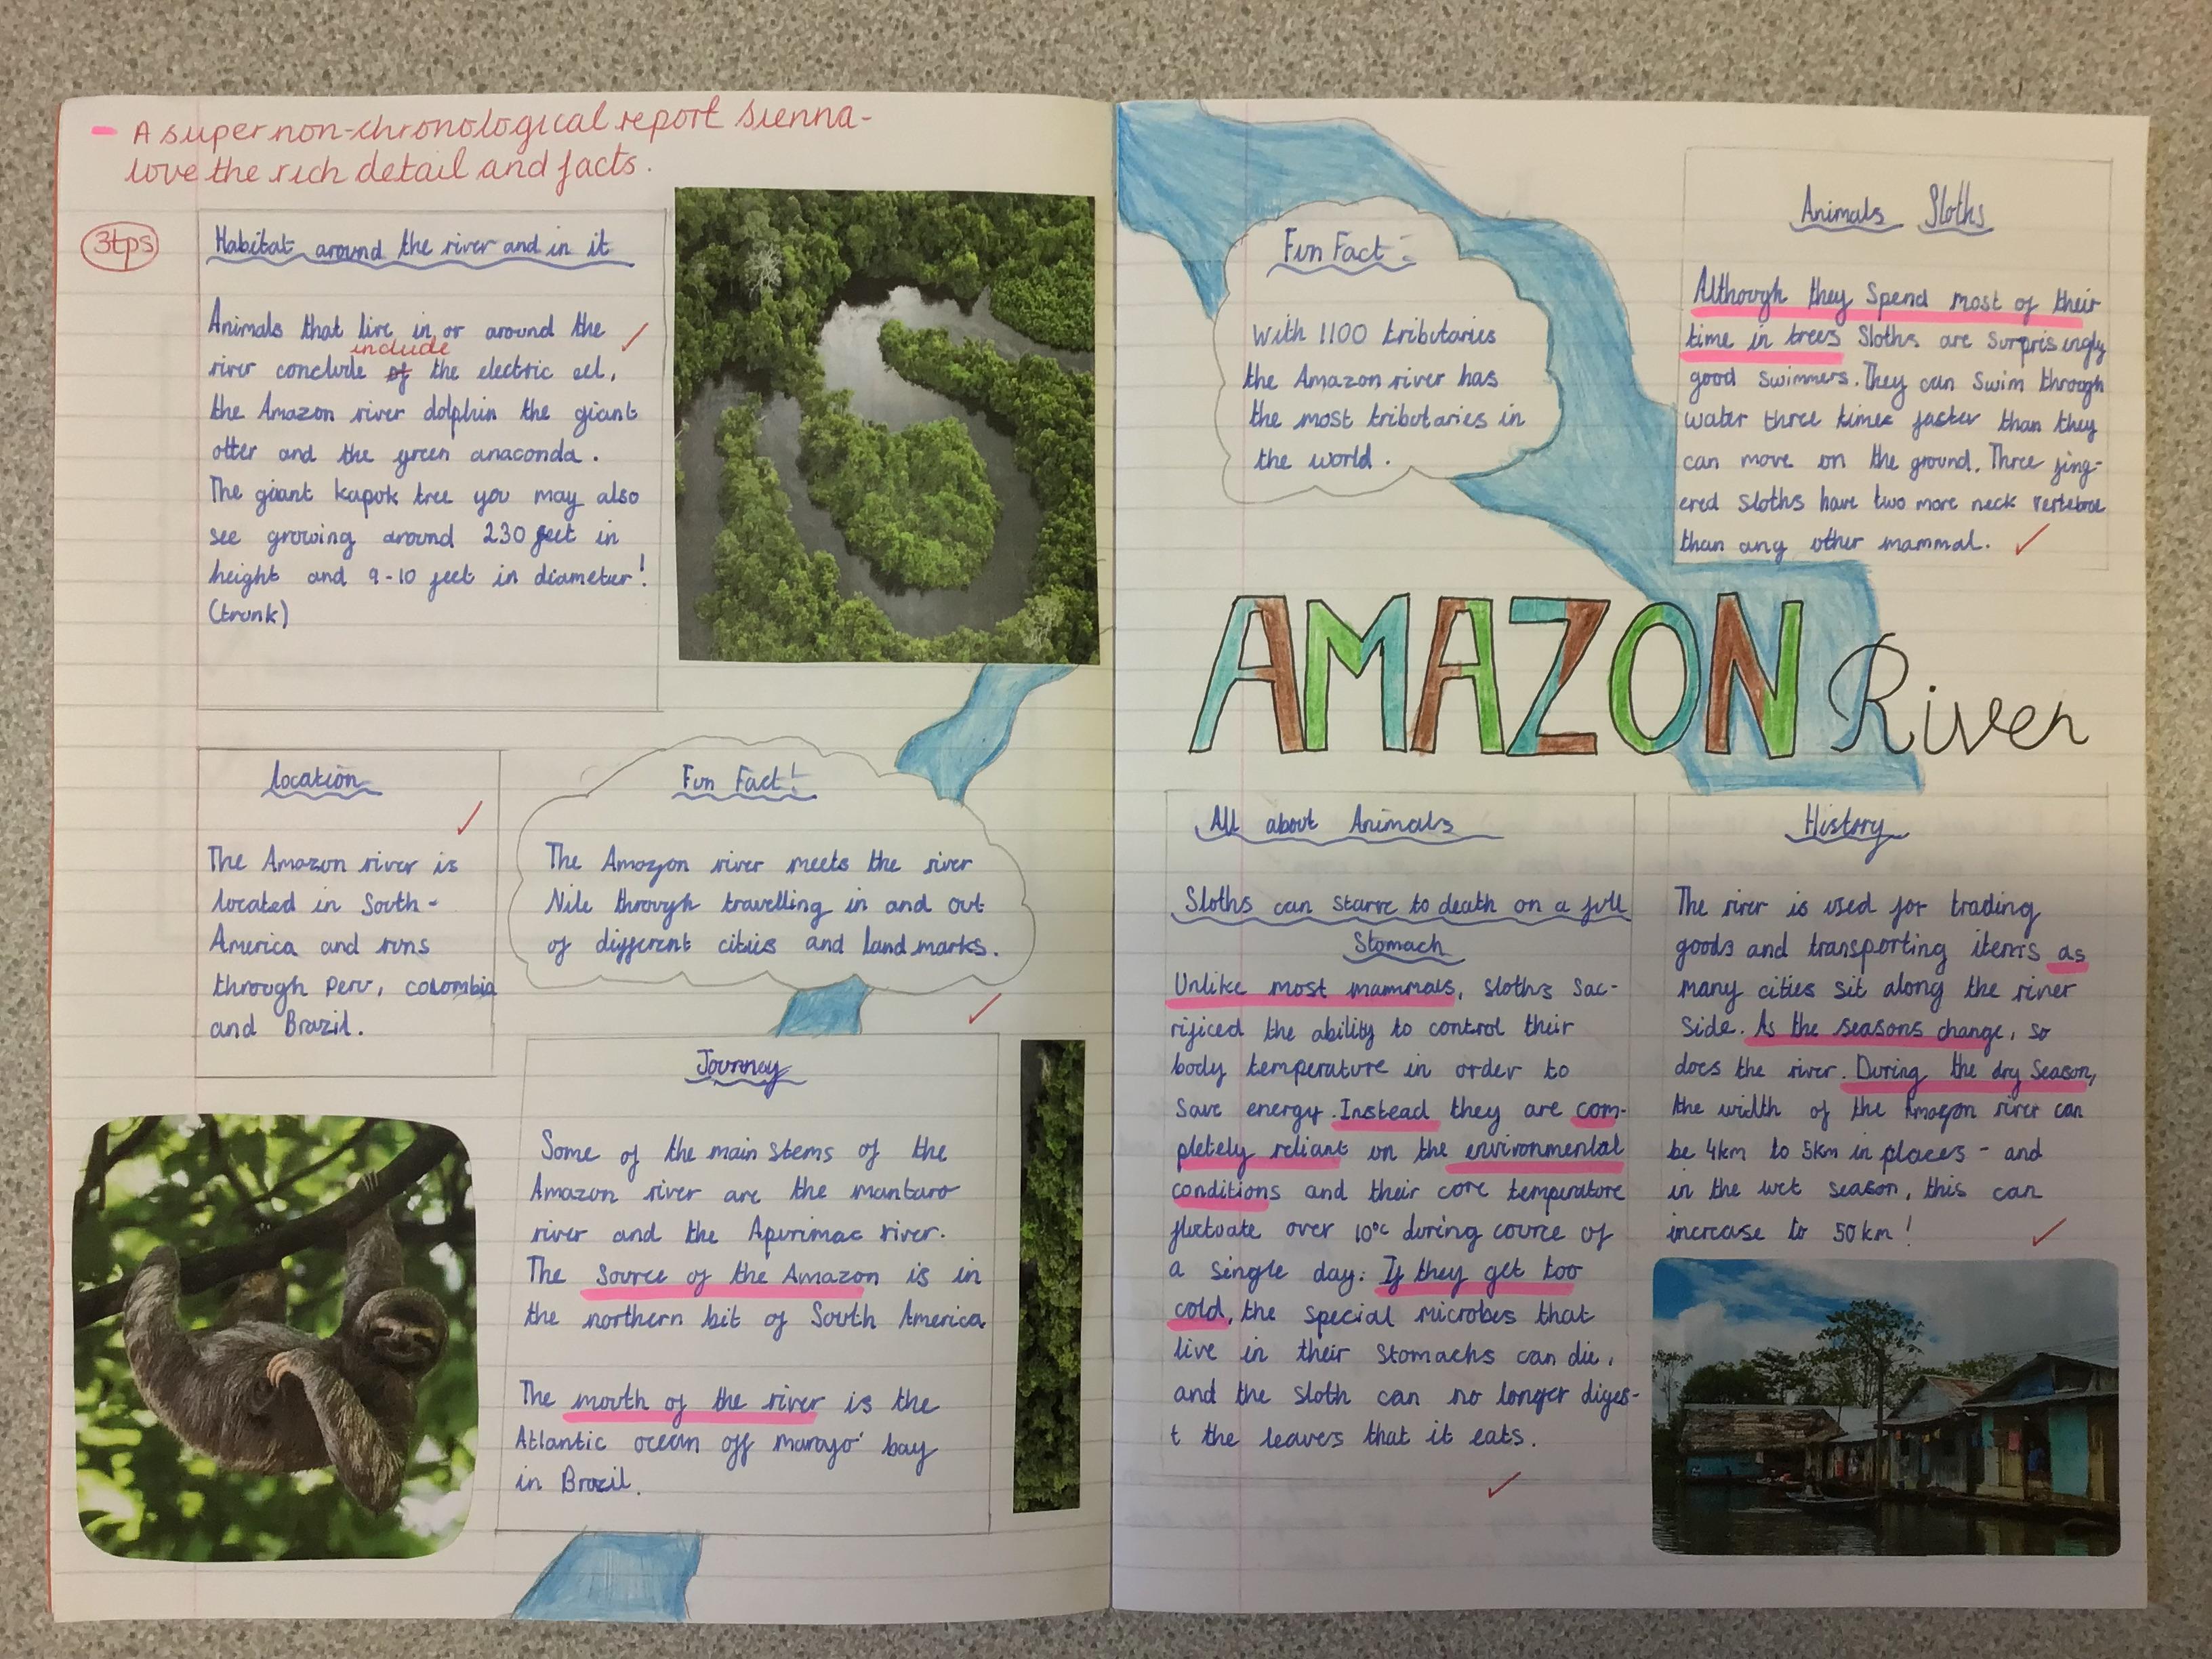 - A super non-chronological report Sienna-
love the rich detail and facts.
3tps
Habitat around the river and in it
Animals that live in or around the
include
river conclude of the electric eel,
the Amazon river dolphin the giant
otter and the green anaconda.
The giant kapok tree you may also
see growing around 230 feet in
height and 9-10 feet in diameter!
(trunk)
Location
The Amazon river is
located in South-
America and runs
through Peru, colombia
and Brazil.
Fun Fact!
The Amazon river meets the river
Nile through travelling in and out
of different cities and landmarks.
Journey
Some of the main stems of the
Amazon river are the mantaro
river and the Apurimac river.
The source of the Amazon is in
the northern bit of South America
The mouth of the river is the
Atlantic ocean off marajo' bay
in Brazil.
Fun Fact:
With 1100 tributaries
the Amazon river has
the most tributaries in
the world.
Animals Sloths
Although they spend most of their
time in trees Sloths are surprisingly
good swimmers. They can swim through
water three times faster than they
can move on the ground. Three fing-
ered sloths have two more neck vertebrae
than any other mammal.
AMAZON River
All about Animals
Sloths can starve to death on a full
Stomach
Unlike most mammals, sloths sac-
rificed the ability to control their
body temperature in order to
save energy. Instead they are com-
pletely reliant on the environmental
conditions and their core temperature
fluctuate over 10°c during cource of
a single day. If they get too
cold, the special microbes that
live in their stomachs can die,
and the sloth can no longer diges-
t the leaves that it eats.
History
The river is used for trading
goods and transporting items as
many cities sit along the river
side. As the seasons change, so
does the river. During the dry season,
the width of the Amazon river can
be 4km to 5km in places - and
in the wet season, this can
increase to 50km!